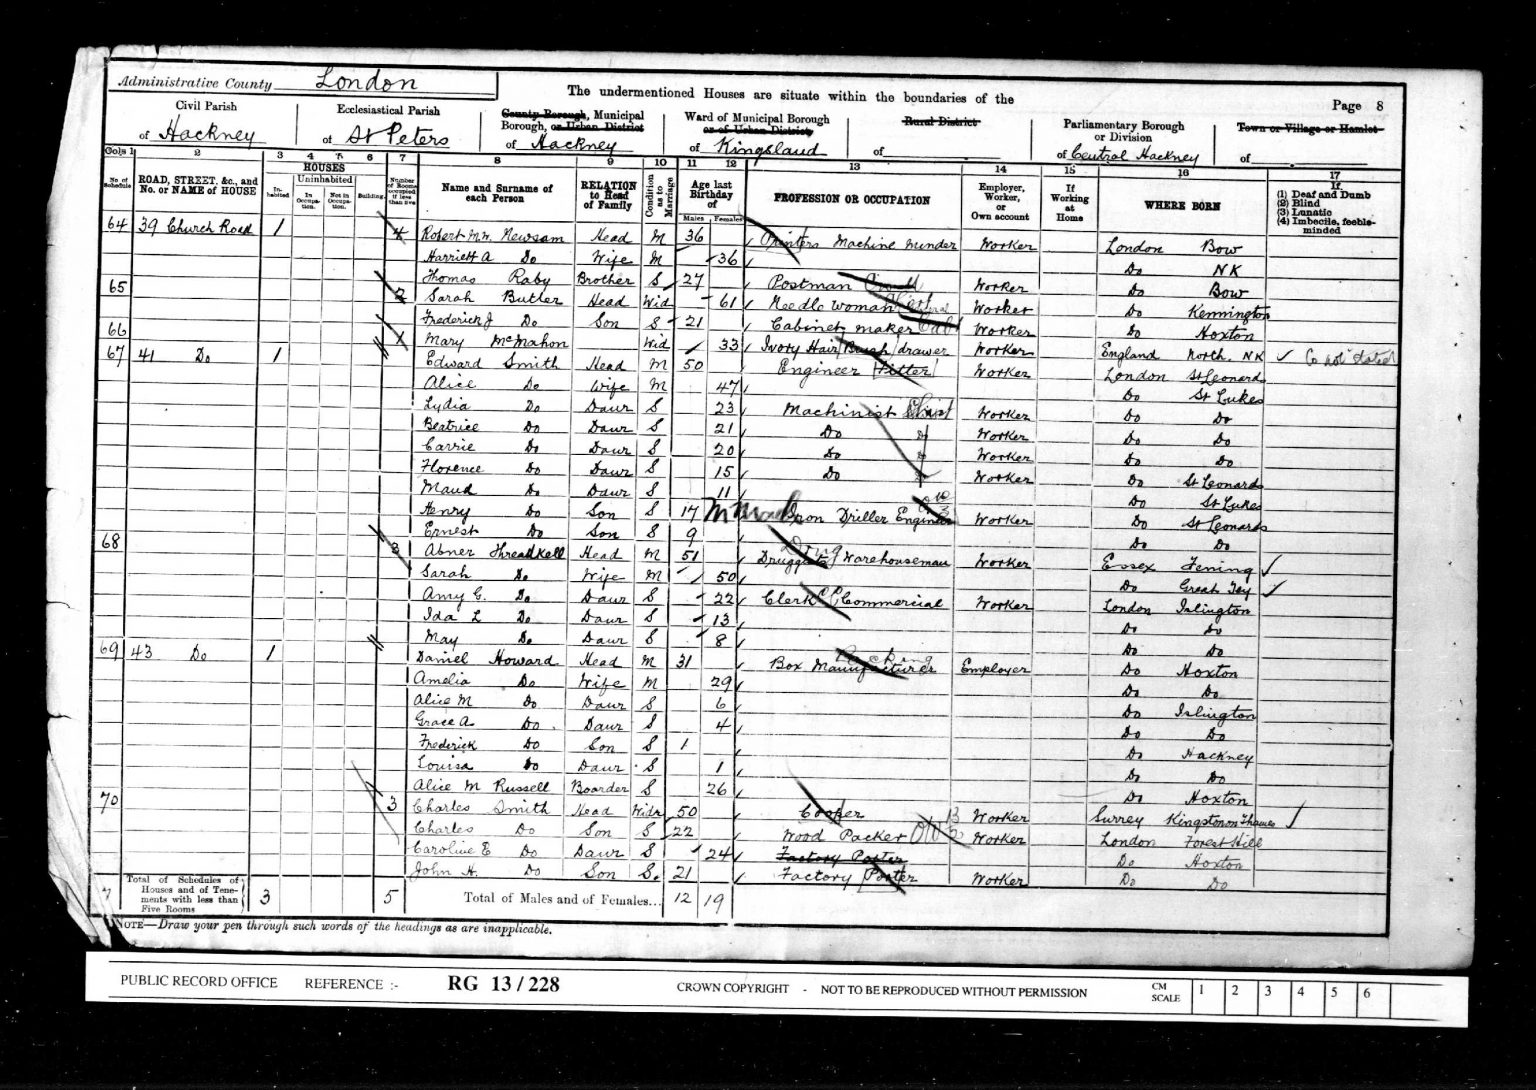 Administrative County London
The undermentioned Houses are situate within the boundaries of the
Page 8
Civil Parish of Hackney
Ecclesiastical Parish of St Peters
County Borough, Municipal Borough, or Urban District of Hackney
Ward of Municipal Borough or of Urban District of Kingsland
Rural District of
Parliamentary Borough or Division of Central Hackney
Town or Village or Hamlet of
Cols 1 2 3 4 5 6 7 8 9 10 11 12 13 14 15 16 17
No. of Schedule
ROAD, STREET, &c., and No. or NAME of HOUSE
HOUSES
Inhabited
Uninhabited
In Occupation.
Not in Occupation.
Building.
Number of Rooms occupied if less than five
Name and Surname of each Person
RELATION to Head of Family
Condition as to Marriage
Age last Birthday of
Males Females
PROFESSION OR OCCUPATION
Employer, Worker, or Own account
If Working at Home
WHERE BORN
If (1) Deaf and Dumb (2) Blind (3) Lunatic (4) Imbecile, feeble-minded
64 39 Church Road 1 4 Robert Newsam Head M 36 Printers Machine Minder Worker London Bow
Harriett A Do Wife M 36 Do NK
Thomas Raby Brother S 27 Postman Worker Do Bow
65 2 Sarah Butler Head Wid 61 Needle woman Worker Do Kennington
Frederick J Do Son S 21 Cabinet maker Worker Do Hoxton
66 1 Mary McMahon Wid 33 Ivory Hair Brush drawer Worker England North. NK Co not stated
67 41 Do 1 Edward Smith Head M 50 Engineer Fitter Worker London St Leonard
Alice Do Wife M 47 Do St Lukes
Lydia Do Daur S 23 Machinist Shirt Worker Do Do
Beatrice Do Daur S 21 Do Do Worker Do Do
Carrie Do Daur S 20 Do Do Worker Do Do
Florence Do Daur S 15 Do Worker Do St Leonards
Maud Do Daur S 11 Do St Lukes
Henry Do Son S 17 Iron Driller Engineer Worker Do St Leonards
Ernest Do Son S 9 Do Do
68 3 Abner Threadkell Head M 51 Druggists Warehouseman Worker Essex Feering
Sarah Do Wife M 50 Do Great Tey
Amy G. Do Daur S 22 Clerk Commercial Worker London Islington
Ida L Do Daur S 13 Do Do
May Do Daur S 8 Do Do
69 43 Do 1 Daniel Howard Head M 31 Box Manufacturer Employer Do Hoxton
Amelia Do Wife M 29 Do Do
Alice M Do Daur S 6 Do Islington
Grace A Do Daur S 4 Do Do
Frederick Do Son S 1 Do Hackney
Louisa Do Daur S 1 Do Do
Alice M Russell Boarder S 26 Do Hoxton
70 3 Charles Smith Head Widr 50 Cooper Worker Surrey Kingston on Thames
Charles Do Son S 22 Wood Packer Worker London Forest Hill
Caroline E Do Daur S 24 Factory Porter Do Hoxton
John H. Do Son S. 21 Factory Porter Worker Do Do
7 Total of Schedules of Houses and of Tenements with less than Five Rooms 3 5 Total of Males and of Females... 12 19
NOTE—Draw your pen through such words of the headings as are inapplicable.
PUBLIC RECORD OFFICE REFERENCE :- RG 13/228 CROWN COPYRIGHT - NOT TO BE REPRODUCED WITHOUT PERMISSION CM SCALE 1 2 3 4 5 6